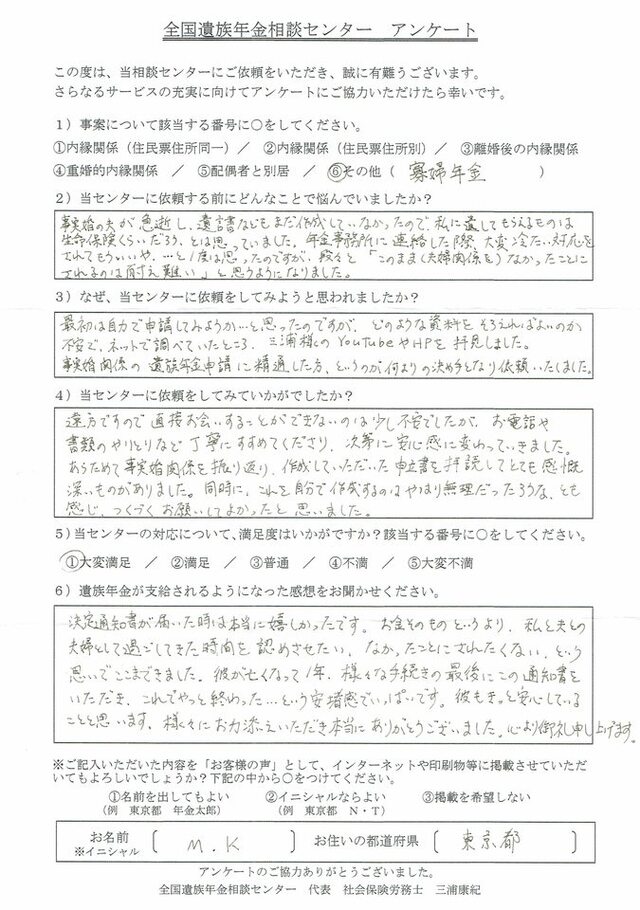 全国遺族年金相談センター　アンケート
この度は、当相談センターにご依頼をいただき、誠に有難うございます。
さらなるサービスの充実に向けてアンケートにご協力いただけたら幸いです。
1）事案について該当する番号に○をしてください。
①内縁関係（住民票住所同一）／　②内縁関係（住民票住所別）／　③離婚後の内縁関係
④重婚的内縁関係　／　⑤配偶者と別居　／　⑥その他（　寡婦年金　）
2）当センターに依頼する前にどんなことで悩んでいましたか？
事実婚の夫が急逝し、遺言書などもまだ作成していなかったので、私に遺してもらえるものは
生命保険くらいだろう、とは思っていました。年金事務所に連絡した際、大変冷たい対応を
されてもういいや、…と1度は思ったのですが、段々と「このまま（夫婦関係を）なかったことに
されるのは耐え難い」と思うようになりました。
3）なぜ、当センターに依頼をしてみようと思われましたか？
最初は自力で申請してみようか…と思ったのですが、どのような資料をそろえればよいのか
不安で、ネットで調べていたところ、三浦様のYouTubeやHPを拝見しました。
事実婚関係の遺族年金申請に精通した方、というのが何よりの決め手となり依頼いたしました。
4）当センターに依頼をしてみていかがでしたか？
遠方ですので直接お会いすることができないのは少し不安でしたが、お電話や
書類のやりとりなど丁寧にすすめてくださり、次第に安心感に変わっていきました。
あらためて事実婚関係を振り返り、作成していただいた申立書を拝読してとても感慨
深いものがありました。同時に、これを自分で作成するのはやはり無理だったろうな、とも
感じ、つくづくお願いしてよかったと思いました。
5）当センターの対応について、満足度はいかがですか？該当する番号に○をしてください。
①大変満足　／　②満足　／　③普通　／　④不満　／　⑤大変不満
6）遺族年金が支給されるようになった感想をお聞かせください。
決定通知書が届いた時は本当に嬉しかったです。お金そのものというより、私と夫との
夫婦として過ごしてきた時間を認めさせたい、なかったことにされたくない、という
思いでここまできました。彼が亡くなって1年、様々な手続きの最後にこの通知書を
いただき、これでやっと終わった…という安堵感でいっぱいです。彼もきっと安心している
ことと思います。様々にお力添えいただき本当にありがとうございました。心より御礼申し上げます。
※ご記入いただいた内容を「お客様の声」として、インターネットや印刷物等に掲載させていただ
いてもよろしいでしょうか？下記の中から○をつけてください。
①名前を出してもよい　②イニシャルならよい　③掲載を希望しない
（例　東京都　年金太郎）　（例　東京都　N・T）
お名前　〔　M.K　〕　お住いの都道府県　〔　東京都　〕
※イニシャル
アンケートのご協力ありがとうございました。
全国遺族年金相談センター　代表　社会保険労務士　三浦康紀